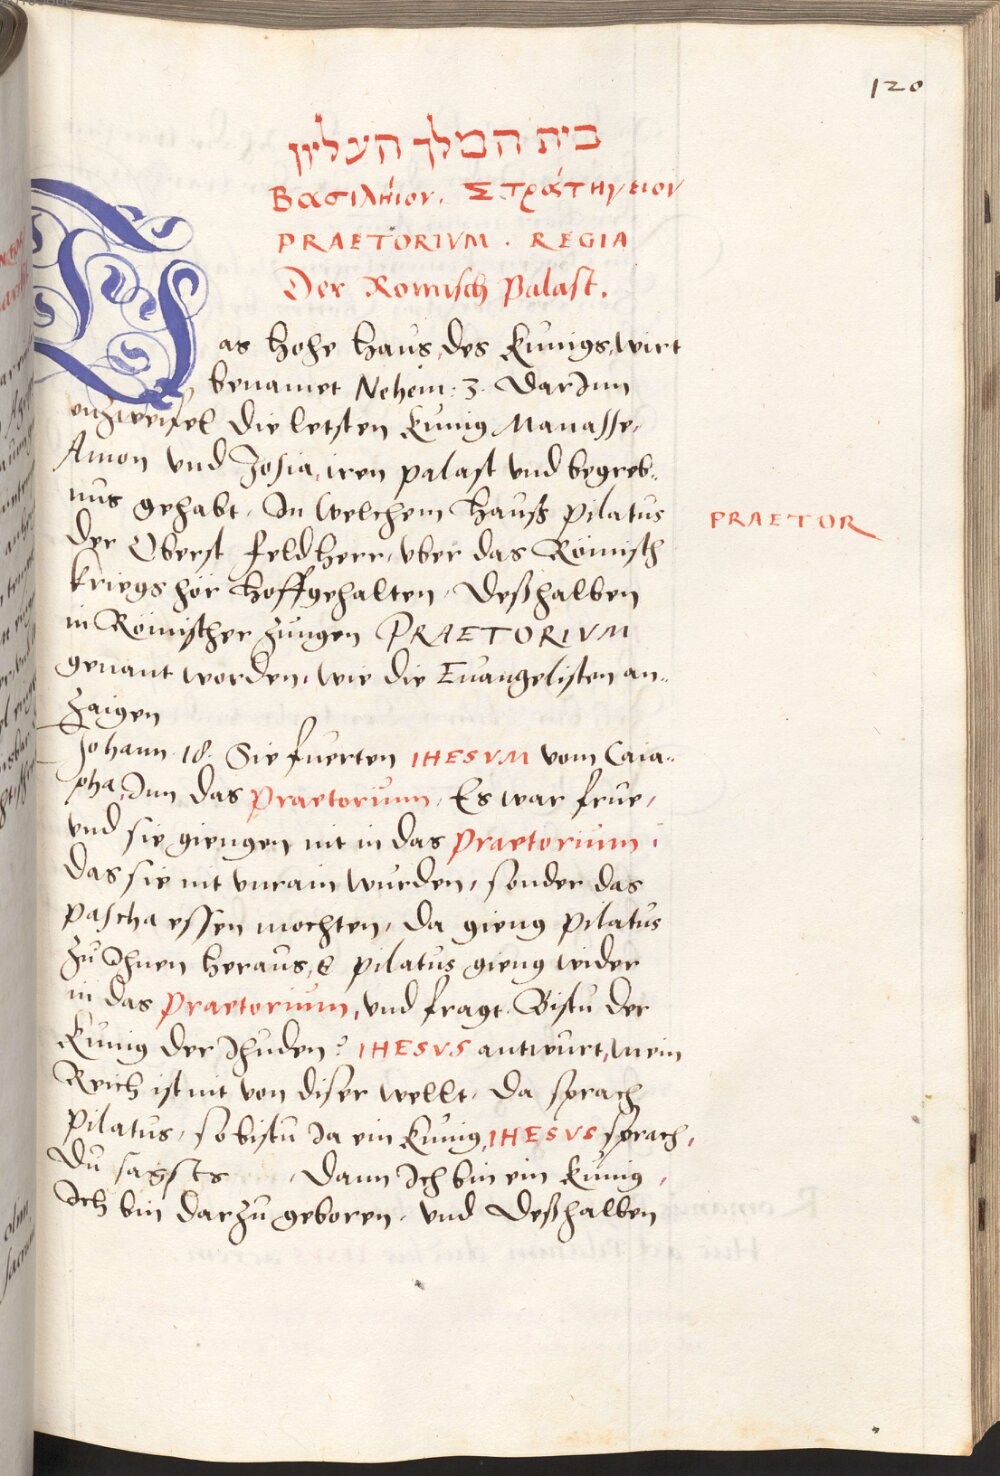 120
בית המלך העליון
Βασιλήιον. Στράτηγειον
PRAETORIVM . REGIA
Der Romisch Palast.
Das hohe haus, des Kunigs, wirt
benamet Nehem: 3. Darinn
onzweifel die letsten Kunig Manasse,
Amon vnd Josia, iren palast vnd begreb-
nus gehabt, In welchem hauß Pilatus
PRAETOR
der Oberst feldherr, vber das Römisch
kriegshör hoffgehalten, deßhalben
in Römischer zungen PRAETORIVM
genant worden, wie die Euangelisten an-
zaigen
Johann. 18. Sie fuerten IHESVM vom Caia-
pha, Inn das Praetorium, Es war frue,
vnd sie giengen nit in das Praetorium,
das sie nit vnrain wurden, sonder das
Pascha essen mochten, da gieng Pilatus
zu Ihnen heraus, & Pilatus gieng wider
in das Praetorium, vnd fragt. Bistu der
Kunig der Jhuden? IHESVS antwurt, mein
Reich ist nit von diser wellt, da sprach
Pilatus, so bistu Ja ein Kunig, IHESVS sprach,
Du sagsts, Dann Ich bin ein Kunig,
Ich bin darzu geboren, vnd deßhalben